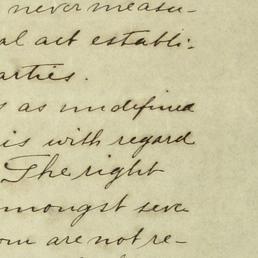 never measu-
al act establi-
arties.
s as undefined
is with regard
The right
amongst seve
om are not re-